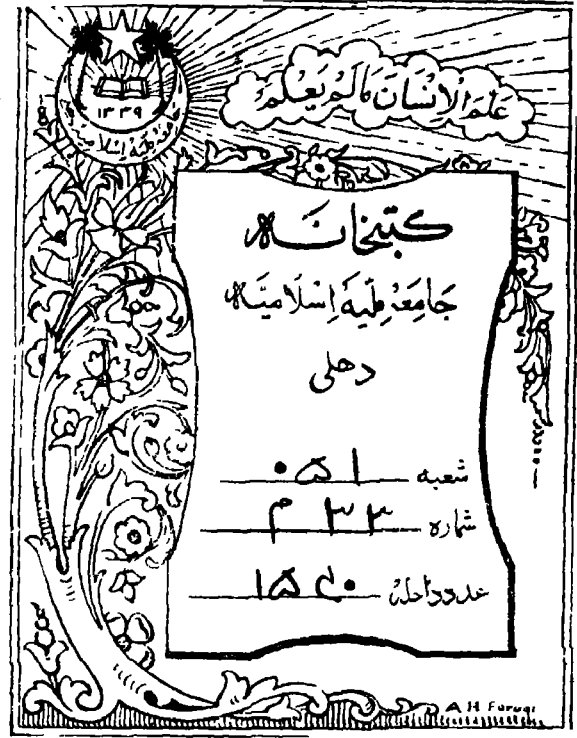 ۱۳۳۹
جامعہ ملیہ اسلامیہ
عَلَّمَ الْاِنْسَانَ مَالَمْ يَعْلَمْ
کتبخانہ
جامعہ ملیہ اسلامیہ
دھلی
شعبہ ۰۵۱
شمارہ ۳۳ م
عدد داخلہ
A H Faruqi